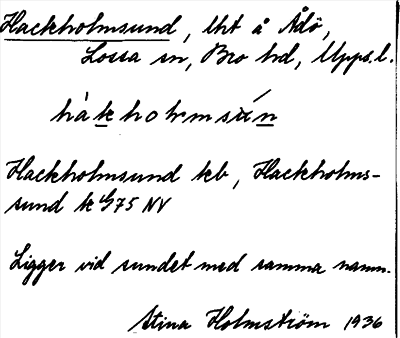 Hackholmsund, lht å Ådö,
Lossa sn, Bro hd, Upps.l.
hàkholmsún
Hackholmsund kb, Hackholms-
sund k G75 NV
Ligger vid sundet med samma namn.
Stina Holmström 1936